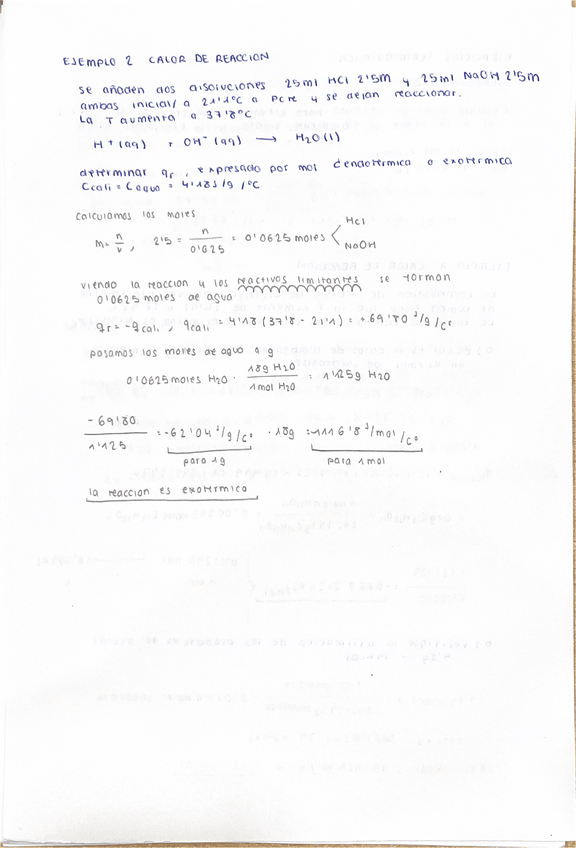 EJEMPLO 2 CALOR DE REACCION
se añaden dos disoluciones 25ml HCl 2'5M y 25ml NaOH 2'5M
ambas inicial/ a 21'1ºC a Pcte y se dejan reaccionar.
La T aumenta a 37'8ºC
H+(aq) + OH-(aq) → H2O(l)
determinar qr, expresado por mol ¿endotermica o exotermica
Ccali = Cagua = 4'18J/g/ºC
calculamos los moles
M= n/v, 2'5 = n/0'025 = 0'0625 moles < HCl NaOH
viendo la reaccion y los reactivos limitantes se forman
0'0625 moles de agua
qr = -qcali, qcali = 4'18 (37'8 - 21'1) = +69'80 J/g/Cº
pasamos los moles de agua a g
0'0625 moles H2O · 18g H2O / 1mol H2O = 1'125g H2O
-69'80 / 1'125 = -62'04 J/g/Cº · 18g = -1116'8 J/mol/Cº
para 1g para 1mol
la reaccion es exotermica